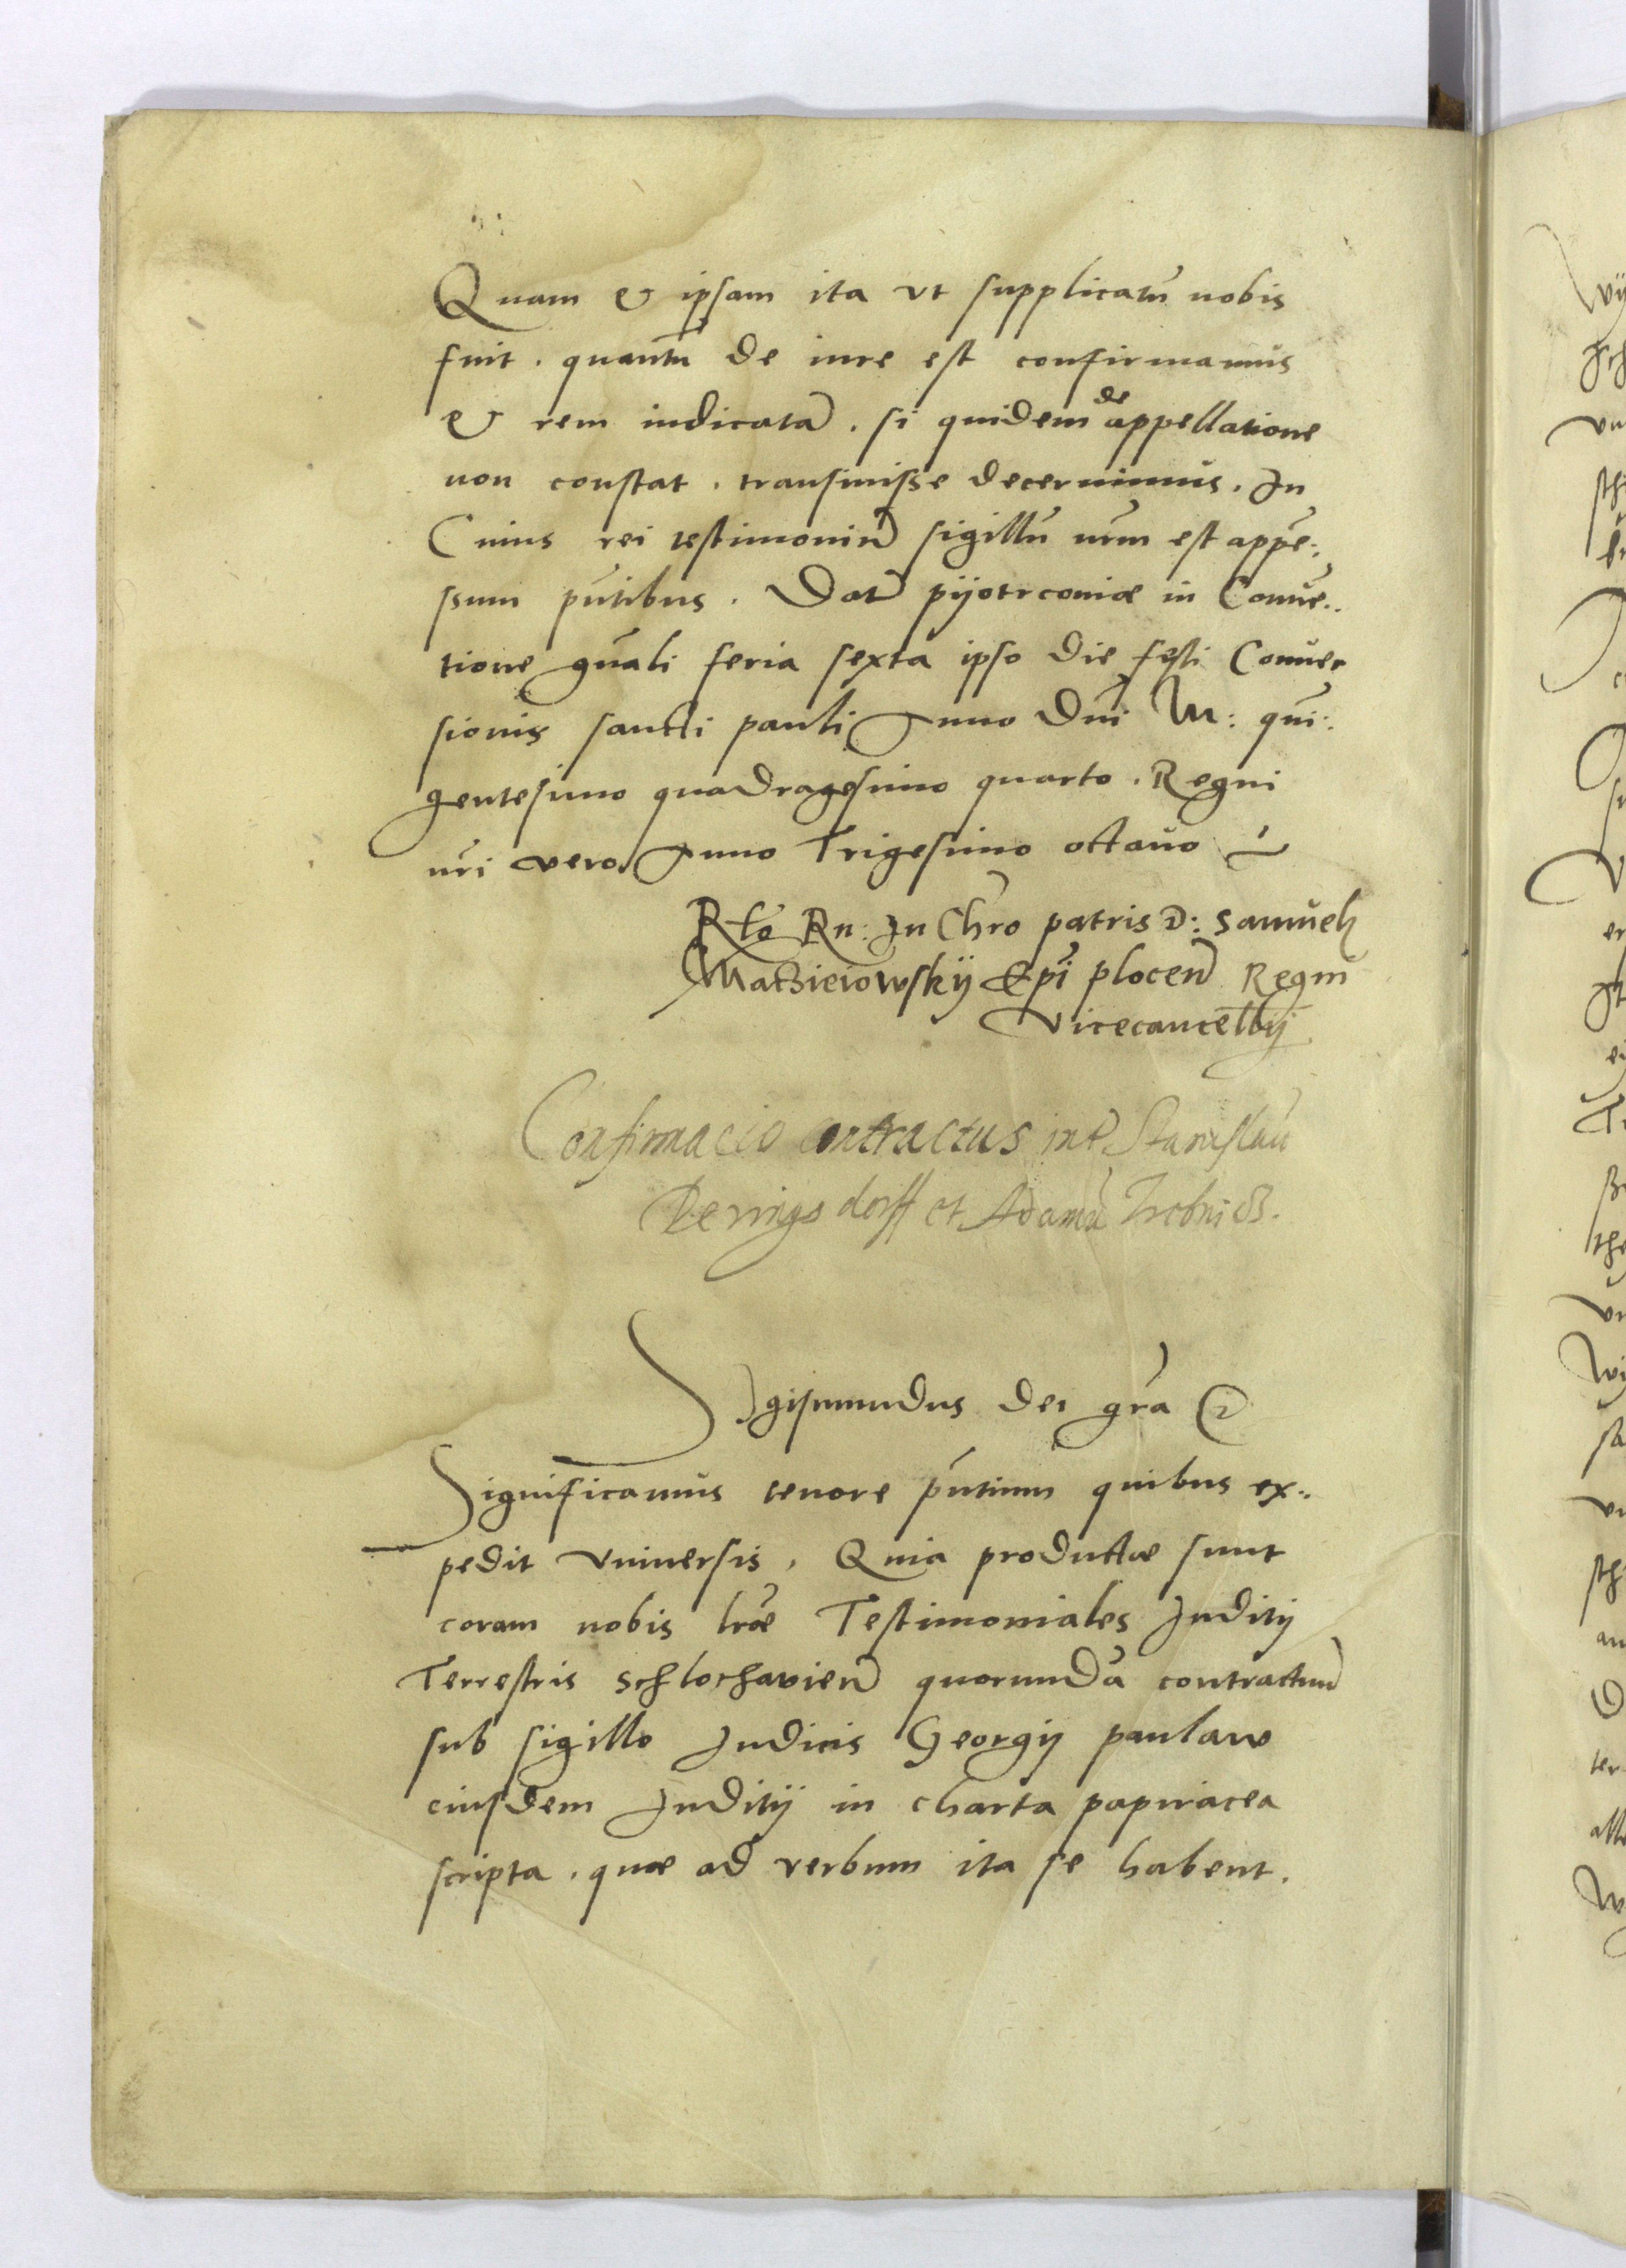 Quam & ipsam ita vt supplicatũ nobis
fuit. quantũ de iure est confirmamus
& rem iudicatã. si quidem de appellatione
non constat. transiuisse decernimus. In
Cuius rei testimoniũ sigillũ nr̃m est appẽ:
ssum pñtibus. Datũ pijotrconiæ in Conuẽ:
tione gñali feria sexta ipso die festi Conuer
sionis sancti pauli Anno Dñi M: quĩ:
gentesimo quadragesimo quarto. Regni
nr̃i vero Anno Trigesimo octauo
Rtõ Rn: In Chr̃o patris D: Samuelis
Matzieiowskij Ep̃i plocen̄ Regni
Vicecancell̃ij
Confirmacio contractus int̃ Stanislaũ
Denings dorff et Adamũ Trebnicz.
Sigismundus dei gr̃a
Significamus tenore pñtium quibus ex:
pedit vniuersis. Quia productæ sunt
coram nobis lr̃æ Testimoniales Juditij
Terrestris Schlochauien̄ quorundã contractuũ
sub sigillo Judicis Georgij paulaw
eiusdem Juditij in charta papiracea
scripta. quæ ad verbum ita se habent.